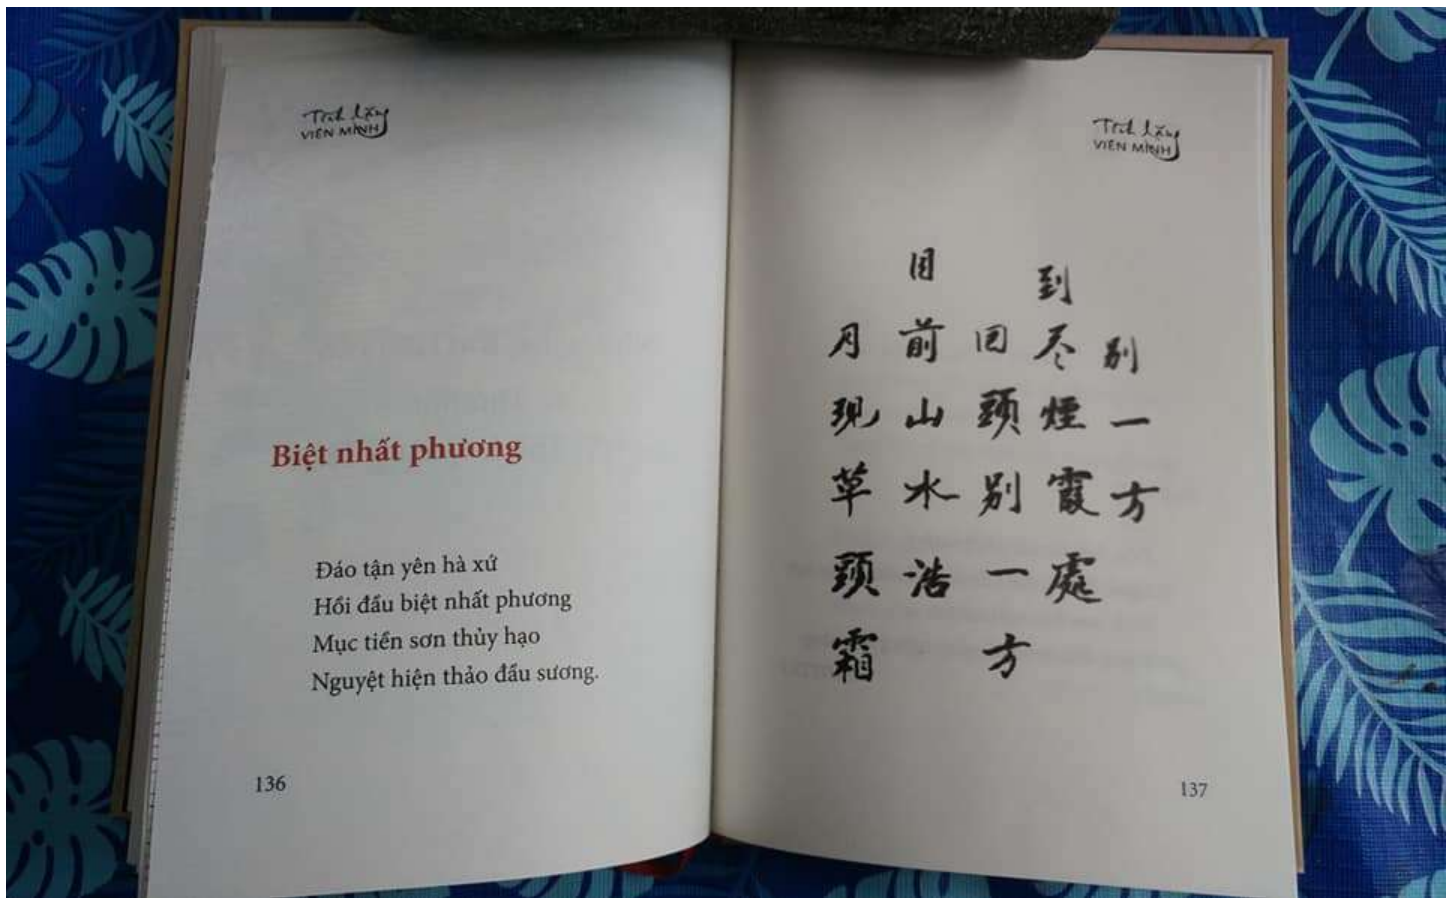 Tĩnh lặng
VIÊN MINH
Biệt nhất phương
Đáo tận yên hà xứ
Hồi đầu biệt nhất phương
Mục tiền sơn thủy hạo
Nguyệt hiện thảo đầu sương.
136
Tĩnh lặng
VIÊN MINH
别一方
到尽煙霞處
回頭别一方
目前山水浩
月现草頭霜
137